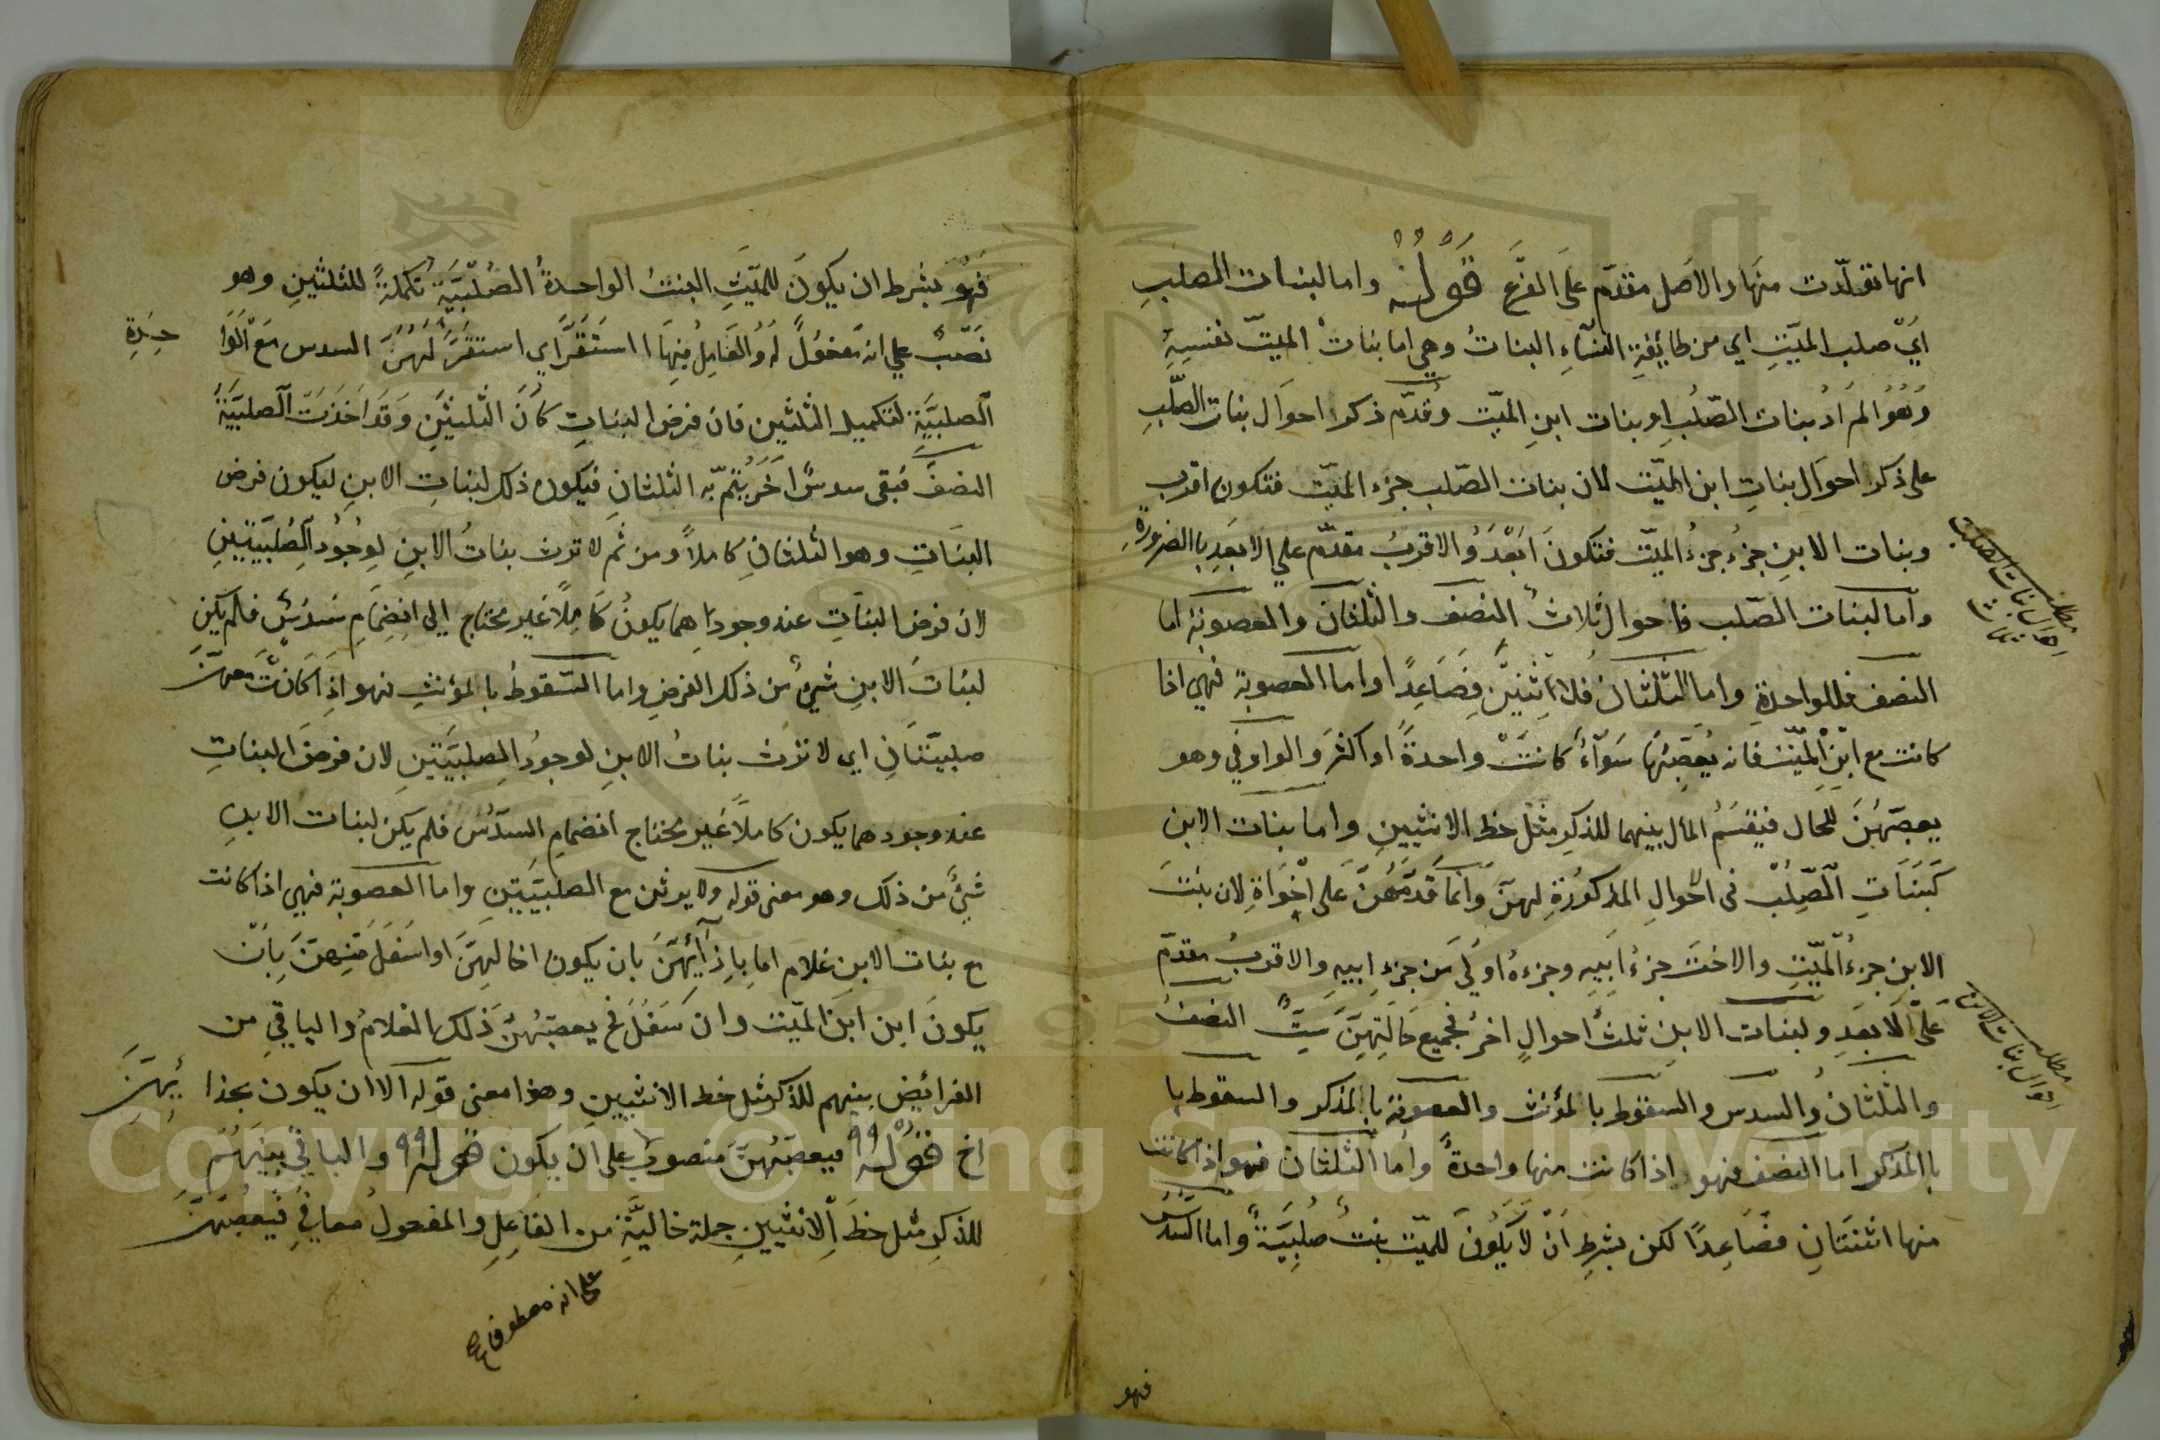 انها تولدت منها والاصل مقدم على الفرع قوله واما لبنات الصلب
اي صلب الميت اي من طائفة النساء البنات وهي اما بنات الميت نفسه
وهو المراد ببنات الصلب او بنات ابن الميت وقدم ذكر احوال بنات الصلب
على ذكر احوال بنات ابن الميت لان بنات الصلب جزء الميت فتكون اقرب
وبنات الابن جزء جزء الميت فتكون ابعد والاقرب مقدم علي الابعد بالضرورة
واما لبنات الصلب فاحوال ثلاث النصف والثلثان والعصوبة اما
النصف فللواحدة واما الثلثان فلاثنتين فصاعدا واما العصوبة فهي اذا
كانت مع ابن الميت فانه يعصبها سوآء كانت واحدة او اكثر والواو في وهو
يعصبهن للحال فيقسم المال بينهما للذكر مثل حظ الانثيين واما بنات الابن
كبنات الصلب فى احوال المذكورة لهن وانما قدمهن على اخواة لان بنت
الابن جزء الميت والاخت جزء ابيه وجزءه اولى من جزء ابيه والاقرب مقدم
على الابعد ولبنات الابن ثلث احوال اخر فجميع حالتهن ست النصف
والثلثان والسدس والسقوط بالمؤنث والعصوبة بالمذكر والسقوط با
بالمذكر اما النصف فهو اذا كانت منها واحدة واما الثلثان فهو اذا كانت
منها اثنتان فصاعدا لكن بشرط ان لا يكون للميت بنت صلبية واما السدس
فهو
مطلب احوال بنات الصلب
مطلب احوال بنات الابن
فهو بشرط ان يكون للميت البنت الواحدة الصلبية تكملة للثلثين وهو
نصب علي انه مفعول له والعامل فيها استقر اي استقر لهن السدس مع الواحدة
الصلبية لتكميل الثلثين فان فرض البنات كان الثلثين وقد اخذت الصلبية
النصف فبقى سدس اخر يتم به الثلثان فيكون ذلك لبنات الابن ليكون فرض
البنات وهو الثلثان كاملا ومن ثم لا ترث بنات الابن لوجود الصلبيتين
لان فرض البنات عند وجودهما يكون كاملا غير محتاج الى انضمام سدس فلم يكن
لبنات الابن شئ من ذلك الفرض واما السقوط بالمؤنث فهو اذا كانت معهن
صلبيتان اي لا ترث بنات الابن لوجود الصلبيتين لان فرض البنات
عند وجودهما يكون كاملا غير محتاج انضمام السدس فلم يكن لبنات الابن
شئ من ذلك وهو معنى قوله ولا يرثن مع الصلبيتين واما العصوبة فهي اذا كانت
مع بنات الابن غلام اما باذآئهن بان يكون اخا لهن او اسفل منهن بان
يكون ابن ابن الميت وان سفل فح يعصبهن ذلك الغلام والباقي من
الفرائض بينهم للذكر مثل حظ الانثيين وهذا معنى قوله الا ان يكون بحذائهن
اخ قوله فيعصبهن منصوب على ان يكون قوله والباقي بينهم
للذكر مثل حظ الانثيين جملة حالية من الفاعل والمفعول معا في فيعصبهن
على انه معطوف صح